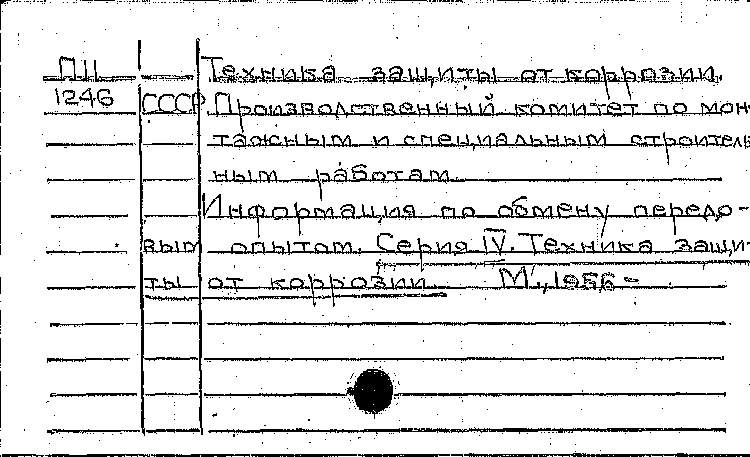 П11 Техника защиты от коррозии.
1246 СССР. Производственный комитет по мон-
тажным и специальным строитель-
ным работам.
Информация по обмену передо-
вым опытом. Серия IV. Техника защи-
ты от коррозии. М., 1966 -